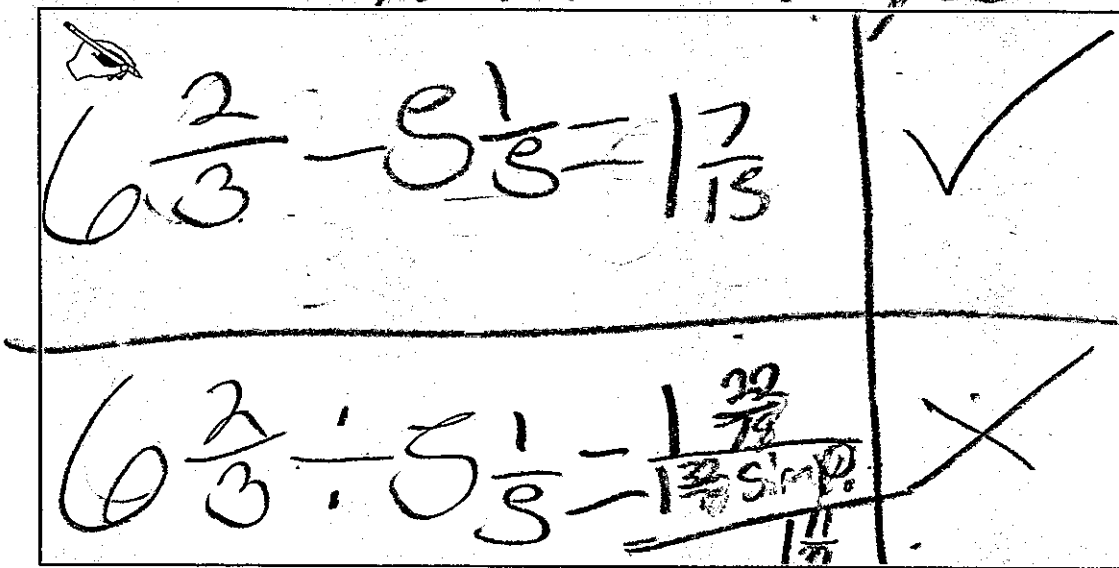 6 2/3 - 5 1/5 = 1 7/15 ✓
6 2/3 ÷ 5 1/5 = 1 22/78 ✗
simp.
1 11